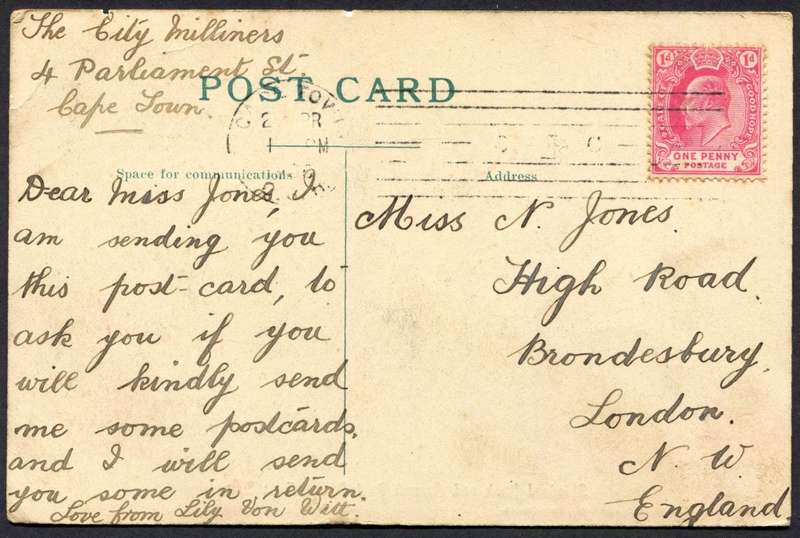 The City Milliners
4 Parliament St.
Cape Town.
POST CARD
1d 1d
GOOD HOPE
ONE PENNY
POSTAGE
PM
Space for communications
Address
Dear Miss Jones, I
am sending you
this post-card, to
ask you if you
will kindly send
me some postcards,
and I will send
you some in return.
Love from Lily Von Witt.
Miss N. Jones.
High Road.
Brondesbury,
London.
N. W
England.